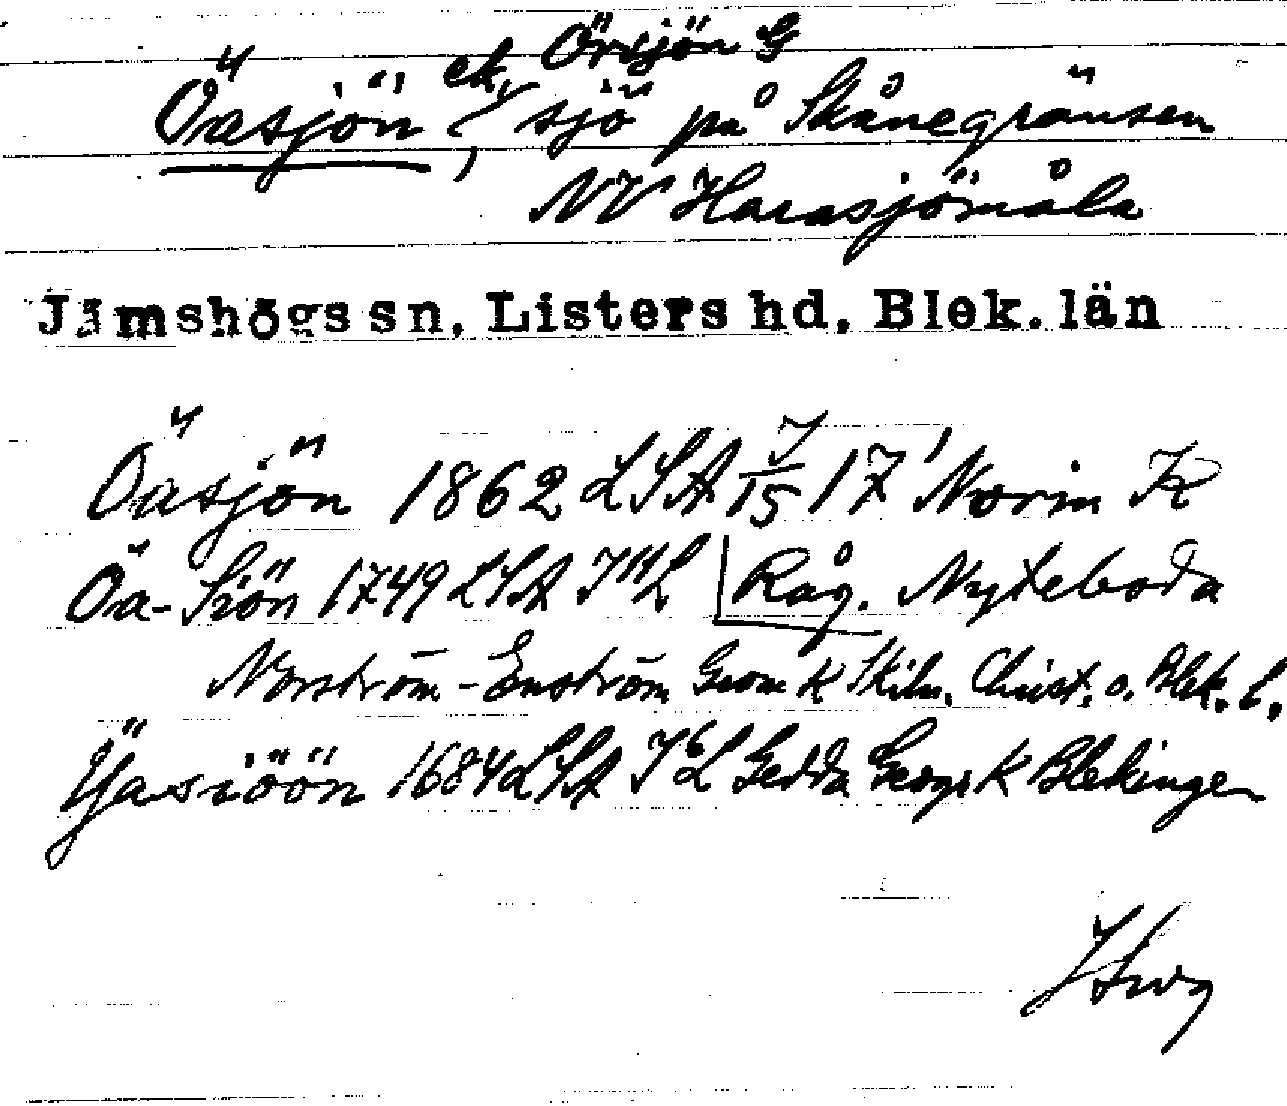 ek. Örsjön G
Öasjön, sjö på Skånegränsen
NV Harasjömåla
Jämshögs sn, Listers hd, Blek. län
Öasjön 1862 LSA J/15 17' Norin K
Öa-Siön 1749 LSA J"L Råg. Nyteboda
Norström-Enström Geom K Skiln. Christ. o. Blek. l.
Ÿasiöön 1684 LSA J6L Gedda Geogr K Blekingen